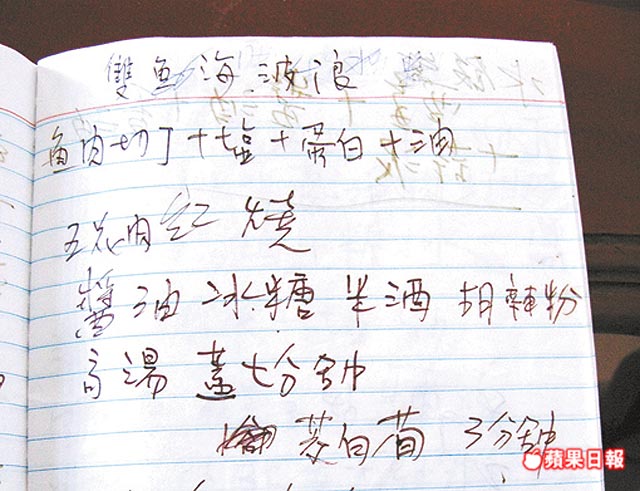 雙魚海波浪
魚肉切丁+塩+蛋白+油
五花肉紅燒
醬油 冰糖 半酒 胡辣粉
高湯 蓋七分鈡
茭白荀 3分鈡
蘋果日報